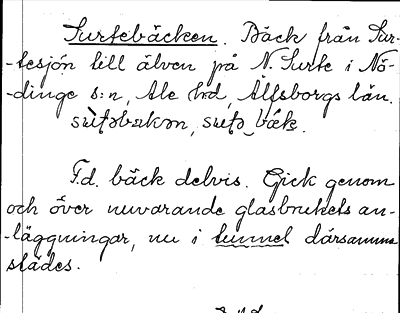 Surtebäcken. Bäck från Sur-
-tesjön till älven på N. Surte i Nö-
-dinge s:n, Ale hd, Älfsborgs län.
F.d. bäck delvis. Gick genom
och över nuvarande glasbrukets an-
-läggningar, nu i tunnel därsamma
städes.